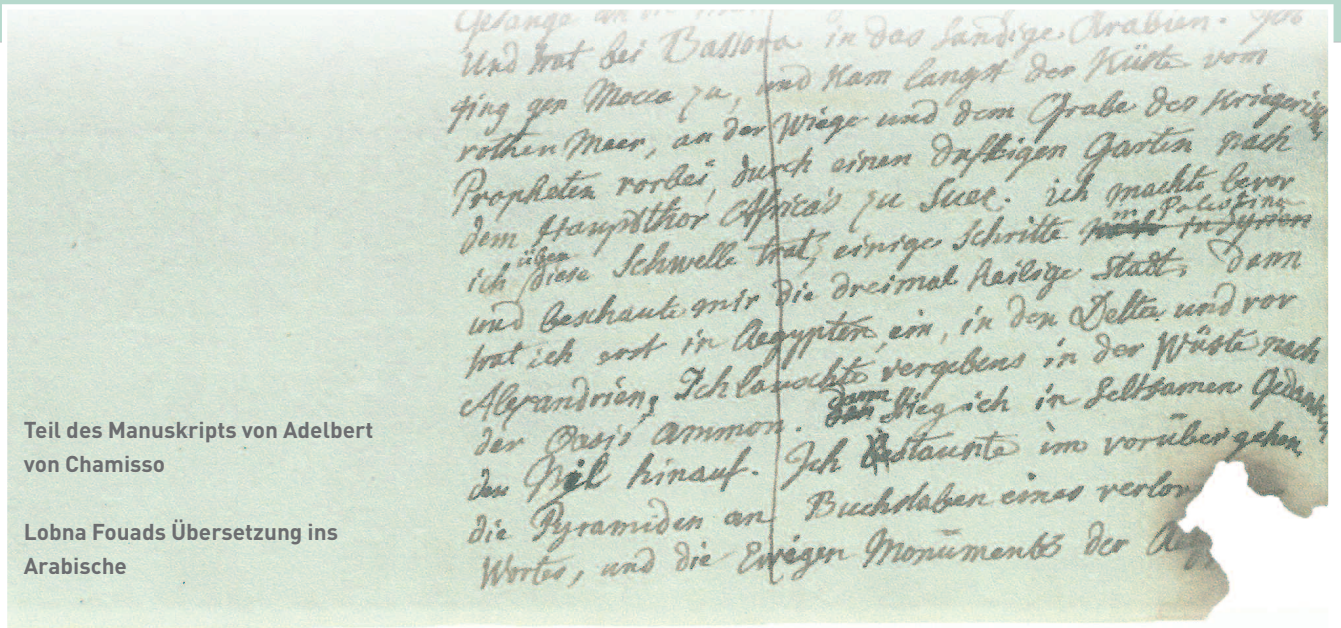 Gesange an
Und trat bei Bassora in das sandige Arabien. Ich
ging gen Mecca zu, und kam langst der Küste vom
rothen Meer, an der Wiege und dem Grabe des Kriegerisch
Propheten vorbei, durch einen duftigen Garten nach
dem Haupdthor Africa's zu Suez. ich machte bevor
ich über diese Schwelle trat, einige Schritte in Palestina in Syrien
und beschaute mir die dreimal heilige Stadt. Dann
trat ich erst in Aegypten ein, in den Delta und vor
Alexandrien, Ich lauschte vergebens in der Wüste nach
der Oasis Ammon. dann stieg ich in seltsamen Gedanken
den Nil hinauf. Ich bestaunte im vorübergehen,
die Pyramiden an Buchstaben eines
Wortes, und die Ewigen Monumente der
Teil des Manuskripts von Adelbert
von Chamisso
Lobna Fouads Übersetzung ins
Arabische